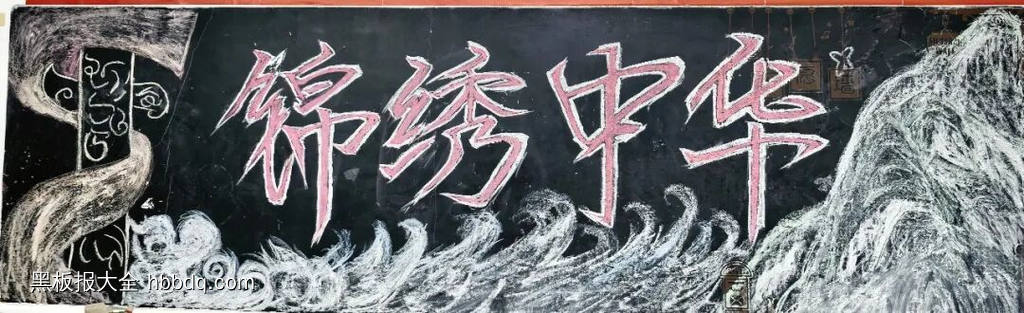 锦绣中华
黑板报大全 hbbdq.com